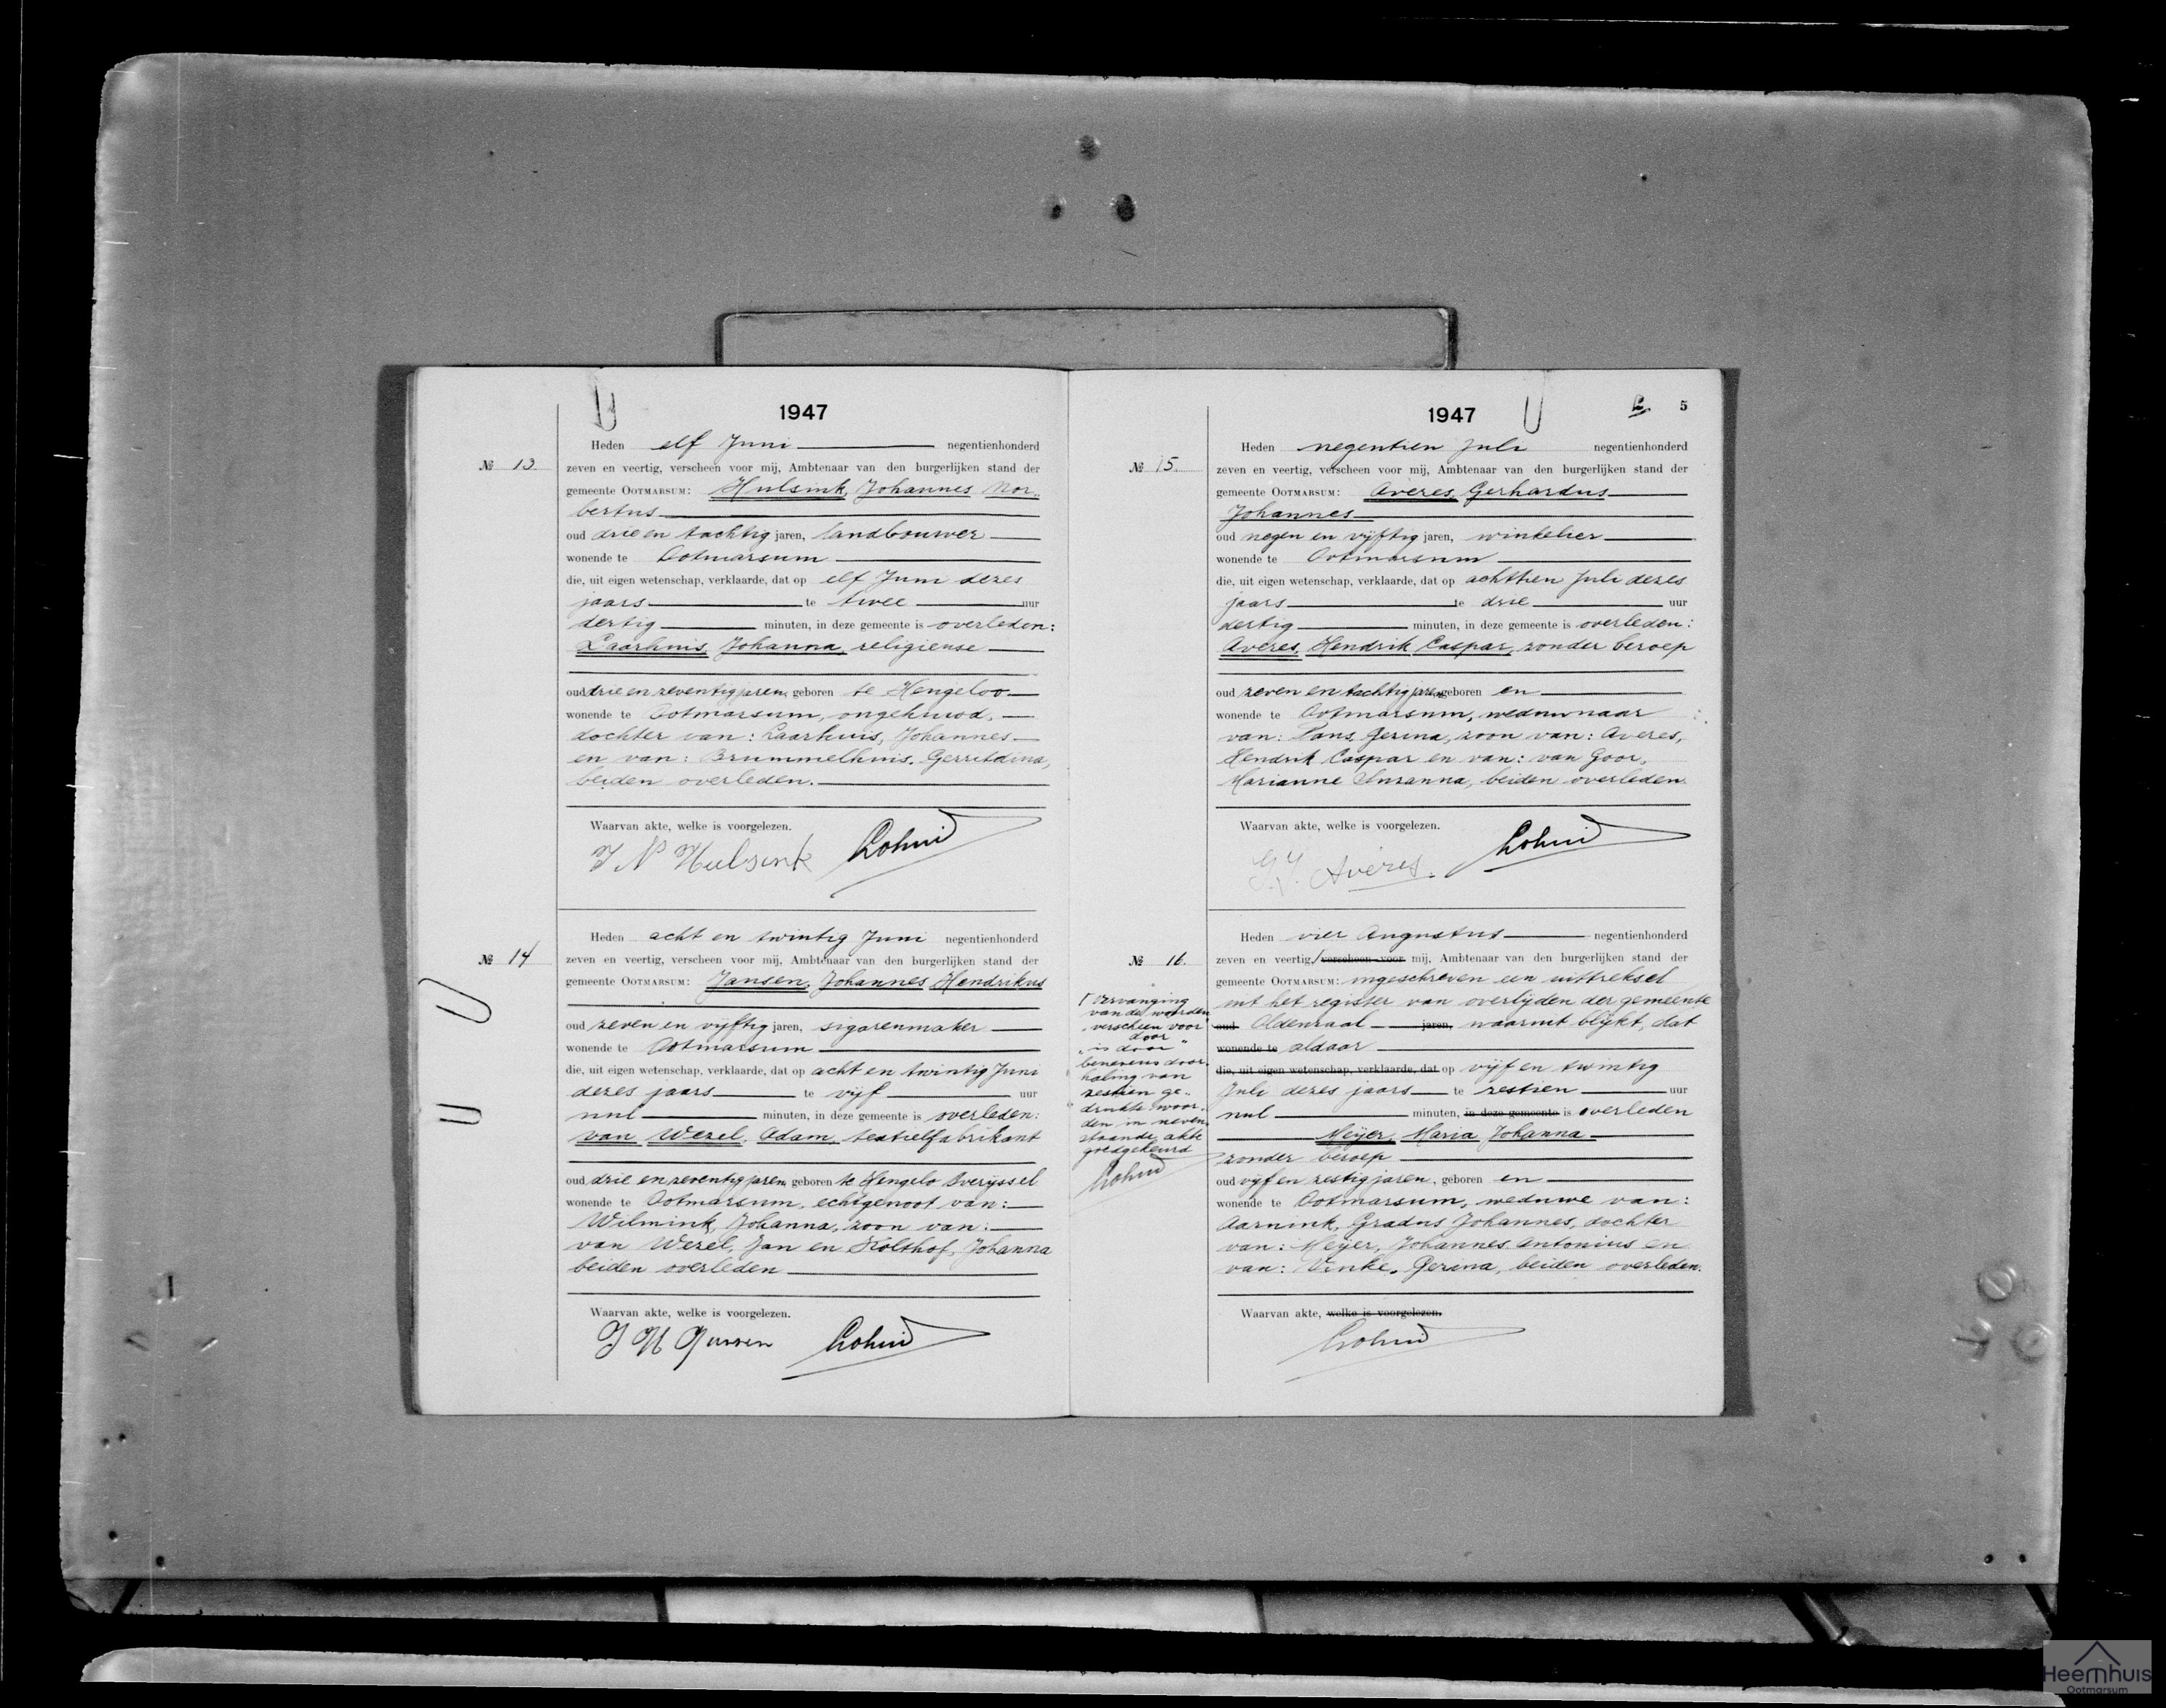 1947
Heden elf Juni negentienhonderd
№ 13.
zeven en veertig, verscheen voor mij, Ambtenaar van den burgerlijken stand der
gemeente OOTMARSUM: Hulsink, Johannes Nor-
bertus
oud drie en tachtig jaren, landbouwer
wonende te Ootmarsum
die, uit eigen wetenschap, verklaarde, dat op elf Juni dezes
jaars te twee uur
dertig minuten, in deze gemeente is overleden:
Laarhuis, Johanna, religieuse
oud drie en zeventig jaren, geboren te Hengeloo
wonende te Ootmarsum, ongehuwd,
dochter van: Laarhuis, Johannes
en van: Brummelhuis, Gerritdina,
beiden overleden.
Waarvan akte, welke is voorgelezen.
J N Hulsink
Heden acht en twintig Juni negentienhonderd
№ 14
zeven en veertig, verscheen voor mij, Ambtenaar van den burgerlijken stand der
gemeente OOTMARSUM: Jansen, Johannes Hendrikus
oud zeven en vijftig jaren, sigarenmaker
wonende te Ootmarsum
die, uit eigen wetenschap, verklaarde, dat op acht en twintig Juni
dezes jaars te vijf uur
nul minuten, in deze gemeente is overleden:
van Wezel, Adam, textielfabrikant
oud drie en zeventig jaren, geboren te Hengelo Overijssel
wonende te Ootmarsum, echtgenoot van:
Wilmink, Johanna, zoon van:
van Wezel, Jan en Kolthof, Johanna
beiden overleden
Waarvan akte, welke is voorgelezen.
J H Jansen
5
1947
Heden negentien Juli negentienhonderd
№ 15.
zeven en veertig, verscheen voor mij, Ambtenaar van den burgerlijken stand der
gemeente OOTMARSUM: Averes, Gerhardus
Johannes
oud negen en vijftig jaren, winkelier
wonende te Ootmarsum
die, uit eigen wetenschap, verklaarde, dat op achttien Juli dezes
jaars te drie uur
dertig minuten, in deze gemeente is overleden:
Averes, Hendrik Caspar, zonder beroep
oud zeven en tachtig jaren, geboren en
wonende te Ootmarsum, weduwnaar
van: Gerina, zoon van: Averes,
Hendrik Caspar en van: van Goor,
Marianne Susanna, beiden overleden.
Waarvan akte, welke is voorgelezen.
G.J. Averes.
Heden vier Augustus negentienhonderd
№ 16.
zeven en veertig, verscheen voor mij, Ambtenaar van den burgerlijken stand der
gemeente OOTMARSUM: ingeschreven een uittreksel
uit het register van overlijden der gemeente
oud Oldenzaal jaren, waaruit blijkt, dat
wonende te aldaar
die, uit eigen wetenschap, verklaarde, dat op vijf en twintig
Juli dezes jaars te zestien uur
nul minuten, in deze gemeente is overleden
Meijer, Maria Johanna
zonder beroep
oud vijf en zestig jaren, geboren en
wonende te Ootmarsum, weduwe van:
Aarnink, Gradus Johannes, dochter
van: Meijer, Johannes Antonius en
van: Vinke, Gerina, beiden overleden.
Waarvan akte, welke is voorgelezen.
Vervanging
van de woorden
„verscheen voor"
door
„is door"
benevens door-
haling van
zestien ge-
drukte woor-
den in neven-
staande akte
goedgekeurd
Heemhuis
Ootmarsum